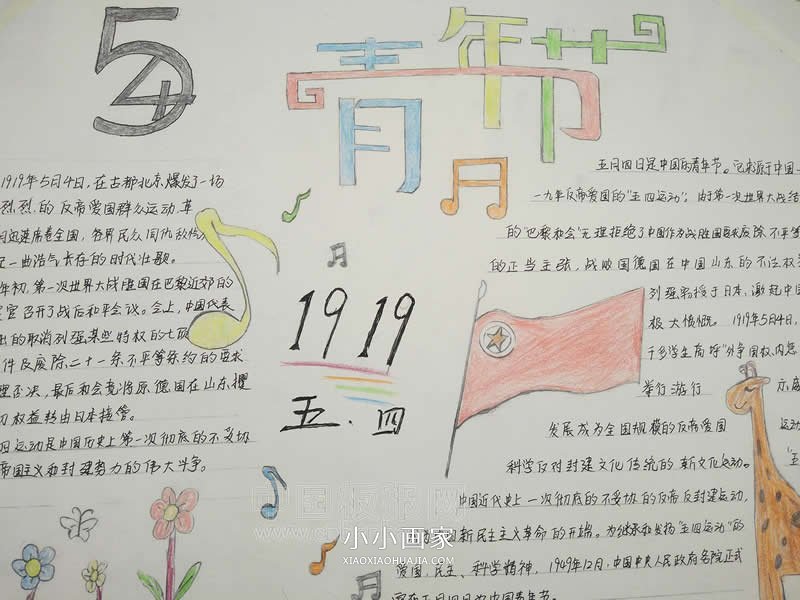 54
青年节
1919年5月4日,在古都北京爆发了一场
烈烈的反帝爱国群众运动,革
迅速席卷全国,各界民众同仇敌忾
一曲浩气长存的时代壮歌。
年初,第一次世界大战胜国在巴黎近郊的
宫召开了战后和平会议。会上,中国代表
出的取消列强某些特权的七项
件及废除二十一条不平等条约的要求
理否决,最后和会竟将原德国在山东攫
切权益转由日本接管。
四运动是中国历史上第一次彻底的不妥协
帝国主义和封建势力的伟大斗争。
1919
五.四
五月四日是中国的青年节。它来源于中国
一九年反帝爱国的"五四运动",由于第一次世界大战结
的"巴黎和会"无理拒绝了中国作为战胜国要求废除不平等
的正当主张,战败国德国在中国山东的不法权
列强第授于日本,激起中国
极大愤慨。1919年5月4日,
千多学生高呼"外争国权,内惩
举行游行 示威
发展成为全国规模的反帝爱国 运动
科学反对封建文化传统的新文化运动。 "五
中国近代史上一次彻底的不妥协的反帝反封建运动,
新民主主义革命的开端。为继承和发扬"五四运动"的
爱国、民主、科学精神,1949年12月,中国中央人民政府各院正式
五月四日为中国青年节。
中国板报网
小小画家
XIAOXIAOHUAJIA.COM